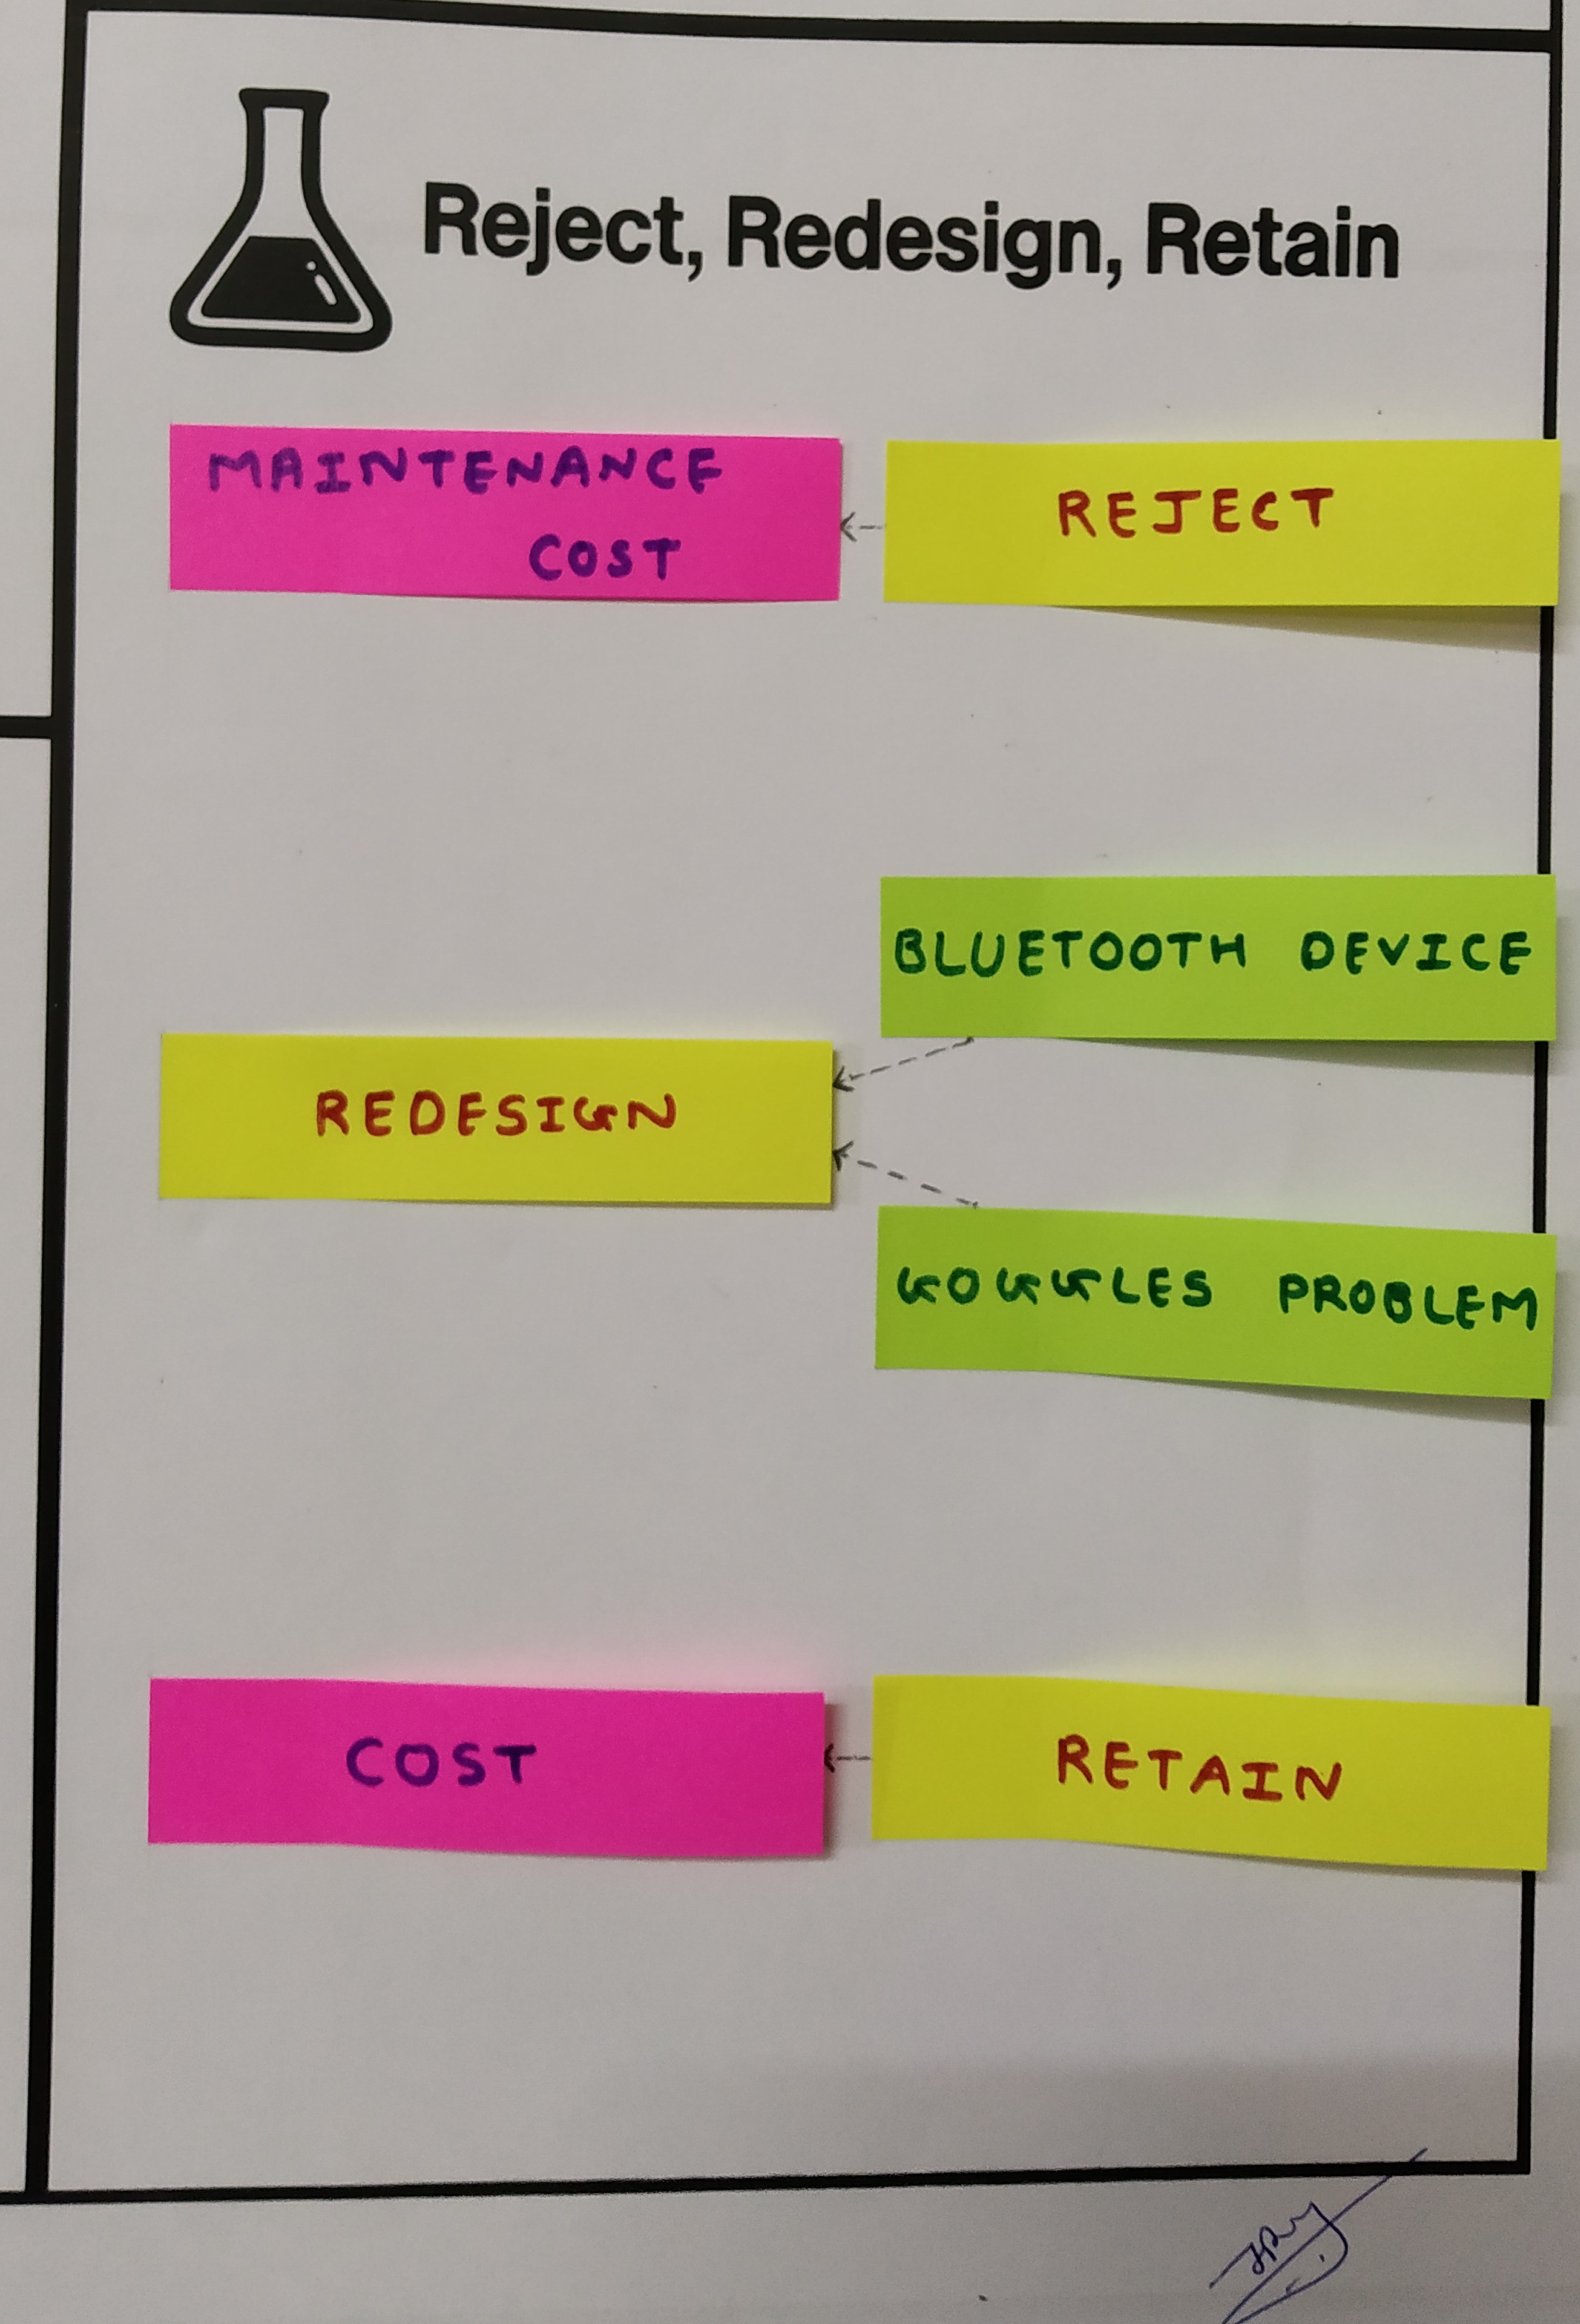 Reject, Redesign, Retain
MAINTENANCE
COST
REJECT
BLUETOOTH DEVICE
REDESIGN
GOGGLES PROBLEM
COST
RETAIN